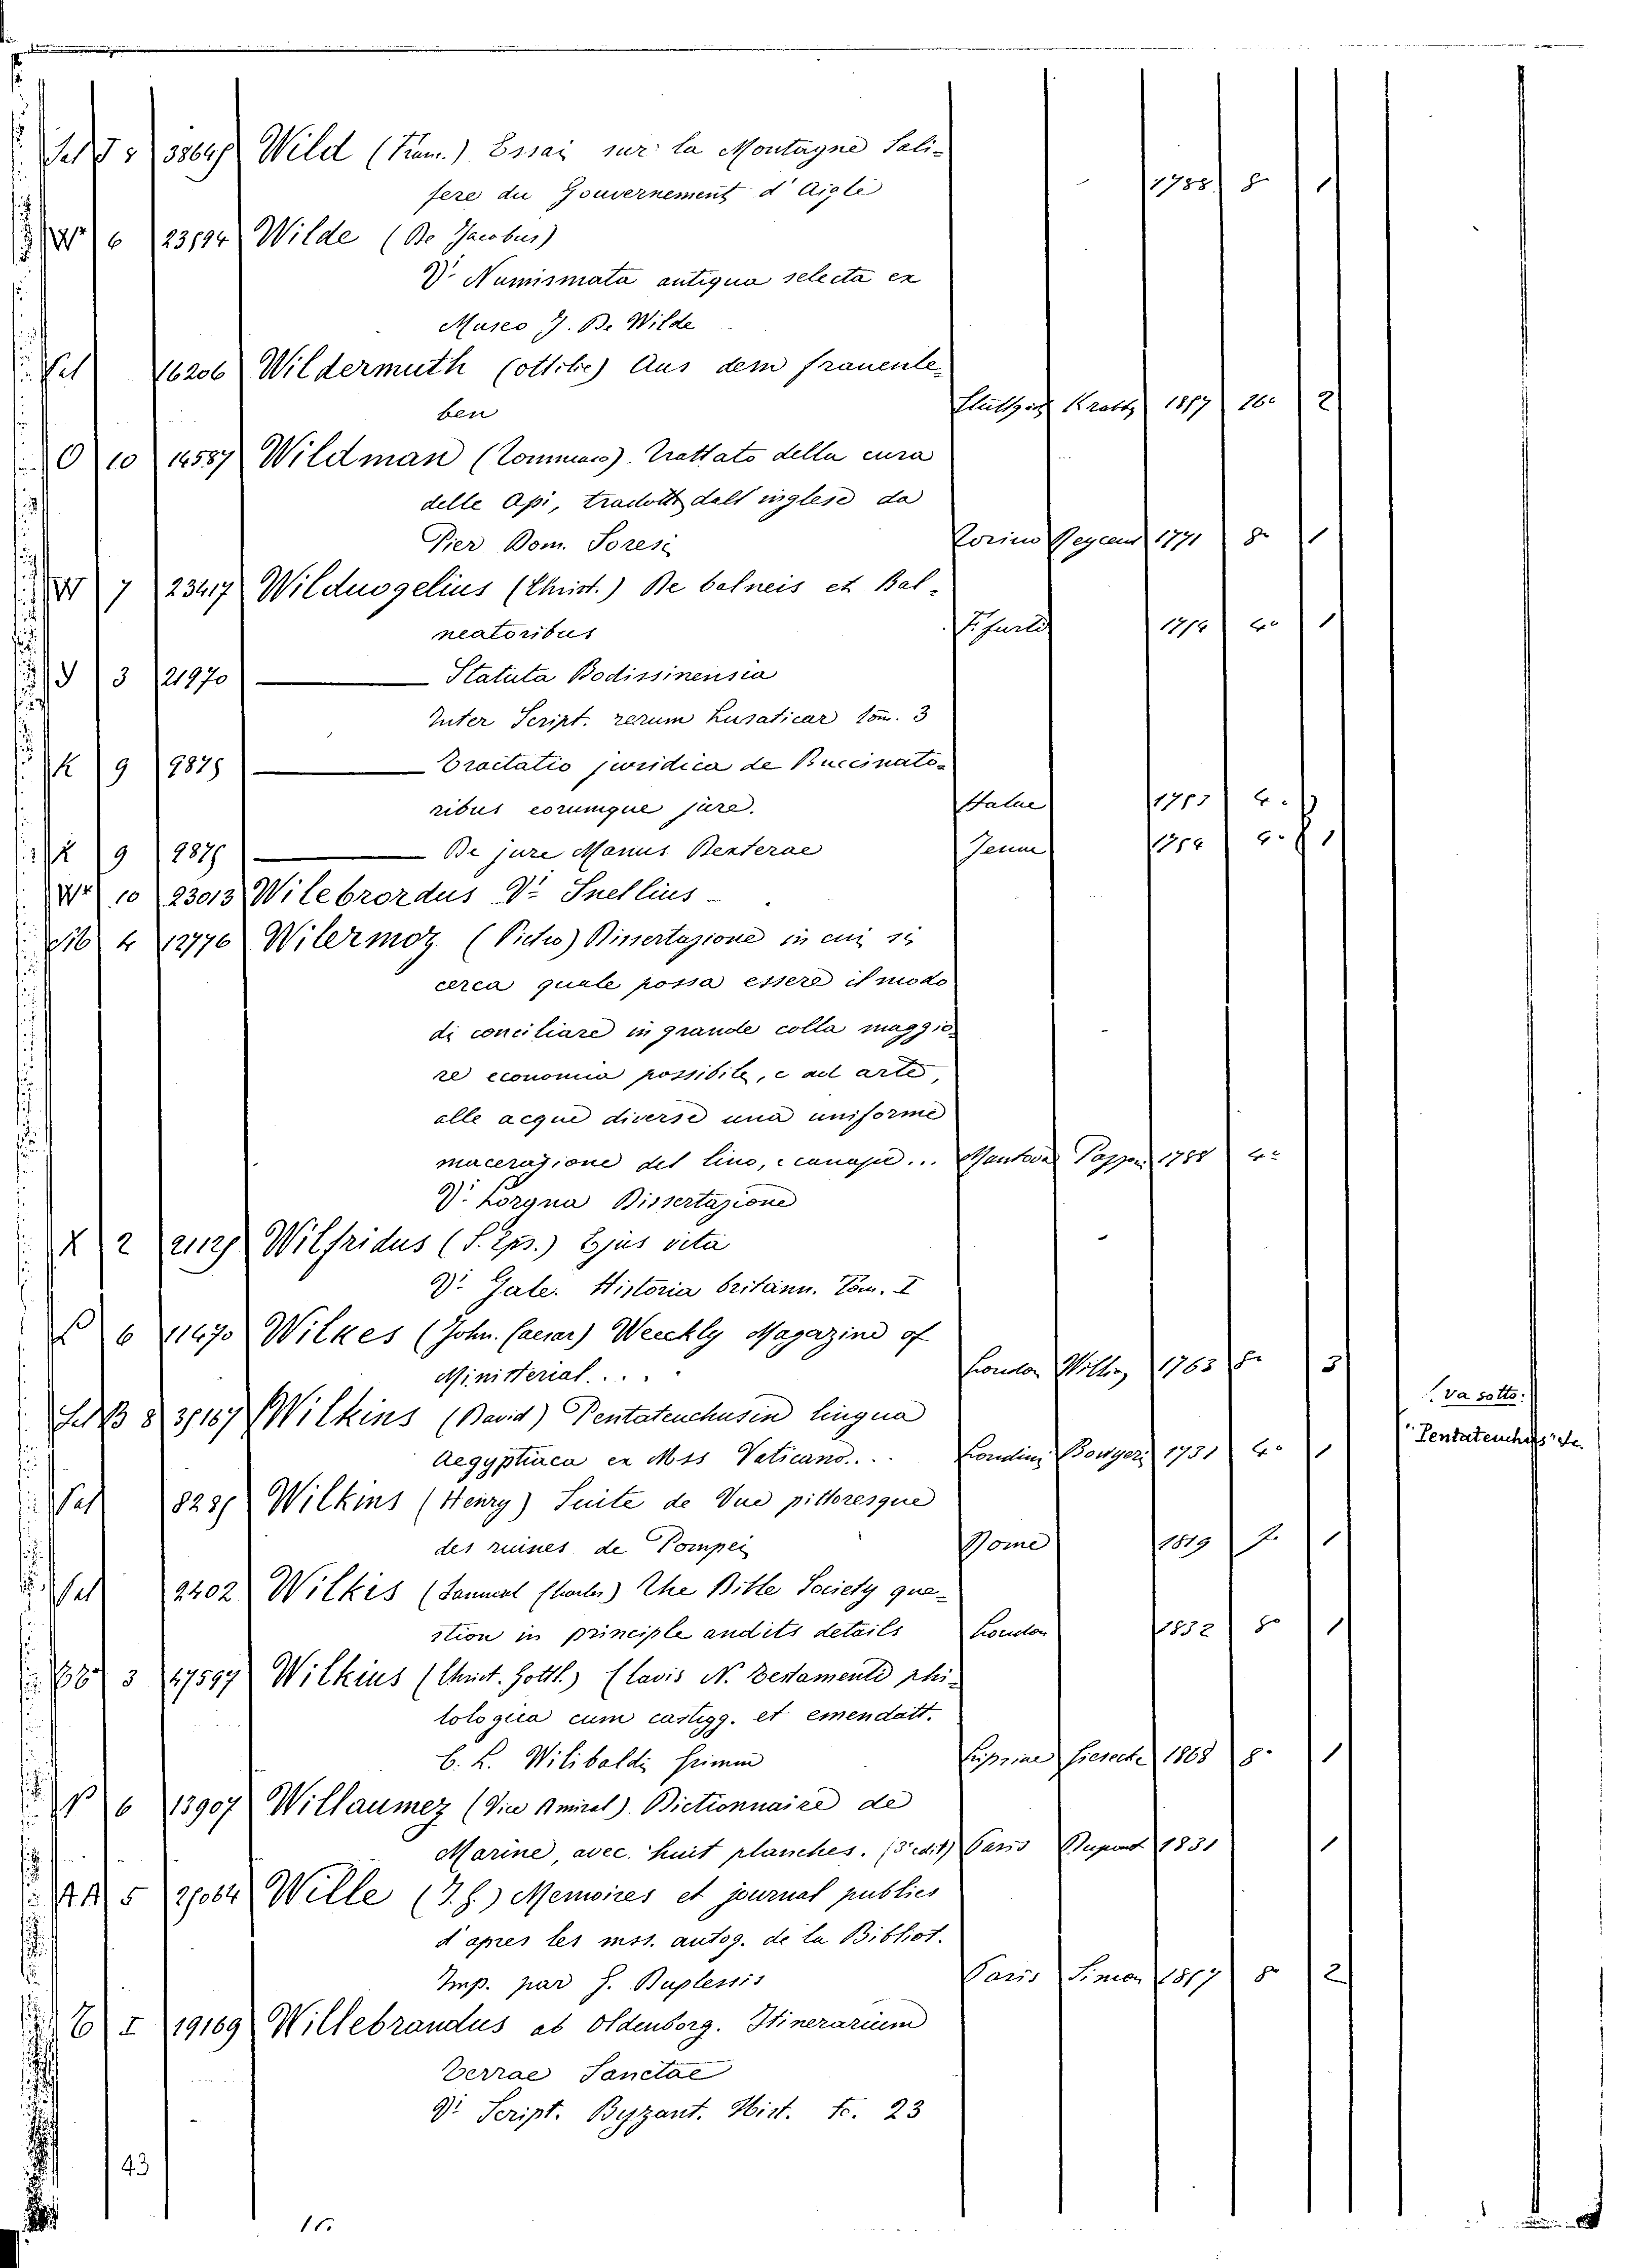 Wild (Fran.) Essai sur la Montagne Sali-
fere du Gouvernement d'Aigle 1788 8° 1
6 23594 Wilde (De Jacobus)
V. Numismata antiqua selecta ex
Museo J. De Wilde
Sal 16206 Wildermuth (ottilie) Aus dem frauenle-
ben Stuttgart 16° 2
O 10 14587 Wildman (Tommaso). Trattato della cura
delle Api, tradott. dall inglese da
Pier Dom. Soresi Torino 1771 8° 1
W 7 23417 Wilduogelius (Christ.) De balneis et Bal-
neatoribus 4° 1
3 21970 Statuta Bodissinensia
Inter Script. rerum Lusaticar tom. 3
K 9 9875 Tractatio juridica de Buccinato-
ribus eorumque jure. Halae 4°
K 9 9875 De jure Manus Dexterae Jenae 4° 1
10 23013 Wilebrordus V. Snellius
4 12776 Wilermoz (Pietro) Dissertazione in cui si
cerca quale possa essere il modo
di conciliare in grande colla maggio-
re economia possibile, e ad arte,
alle acque diverse una uniforme
macerazione del lino, e canape... Mantova 1788 4°
V. Lorgna Dissertazione
X 2 Wilfridus (S. Eps.) Ejus vita
V. Gale. Historia britann. Tom. I
6 11470 Wilkes (John. Caesar) Weeckly Magazine of
Ministerial.... London Wilkes 1763 8° 3
8 Wilkins (David) Pentateuchus in lingua va sotto:
Aegyptiaca ex Mss Vaticano... Londini Bowyer 1731 4° 1 "Pentateuchus" &c.
Sal Wilkins (Henry) Suite de Vue pittoresque
des ruines de Pompei Rome 1819 f. 1
Sal 2402 Wilkis (Samuel Charles) The Bible Society que-
stion in principle and its details London 1832 8° 1
3 17597 Wilkius (Christ. Gottl.) Clavis N. Testamenti phi-
lologica cum castigg. et emendatt.
C. L. Wilibaldi Grimm Lipsiae 1868 8° 1
6 13907 Willaumez (Vice Amiral) Dictionnaire de
Marine, avec huit planches. (3e edit) Paris Dupont 1831 1
AA 5 Wille (J. G.) Memoires et journal publies
d'apres les mss. autog. de la Bibliot.
Imp. par G. Duplessis Paris 1857 8° 2
I 19169 Willebrandus ab Oldenborg. Itinerarium
Terrae Sanctae
V. Script. Byzant. Hist. to. 23
43